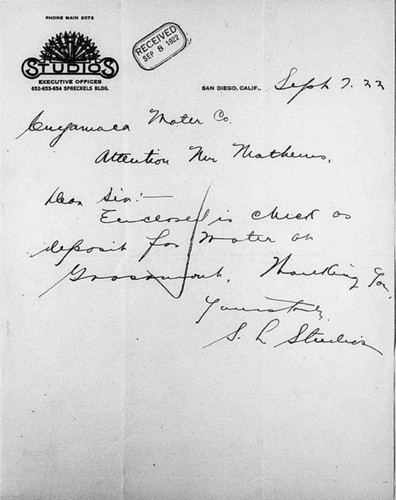 PHONE MAIN 2073
RECEIVED
SEP 8 1922
S-L STUDIOS
EXECUTIVE OFFICES
652-653-654 SPRECKELS BLDG.
SAN DIEGO, CALIF., Sept 7. 22
Cuyamaca Water Co.
Attention Mr Mathews.
Dear Sir:—
Enclosed is check as
deposit for Water at
Grossmont. Thanking You,
Yours truly,
S. L Studios